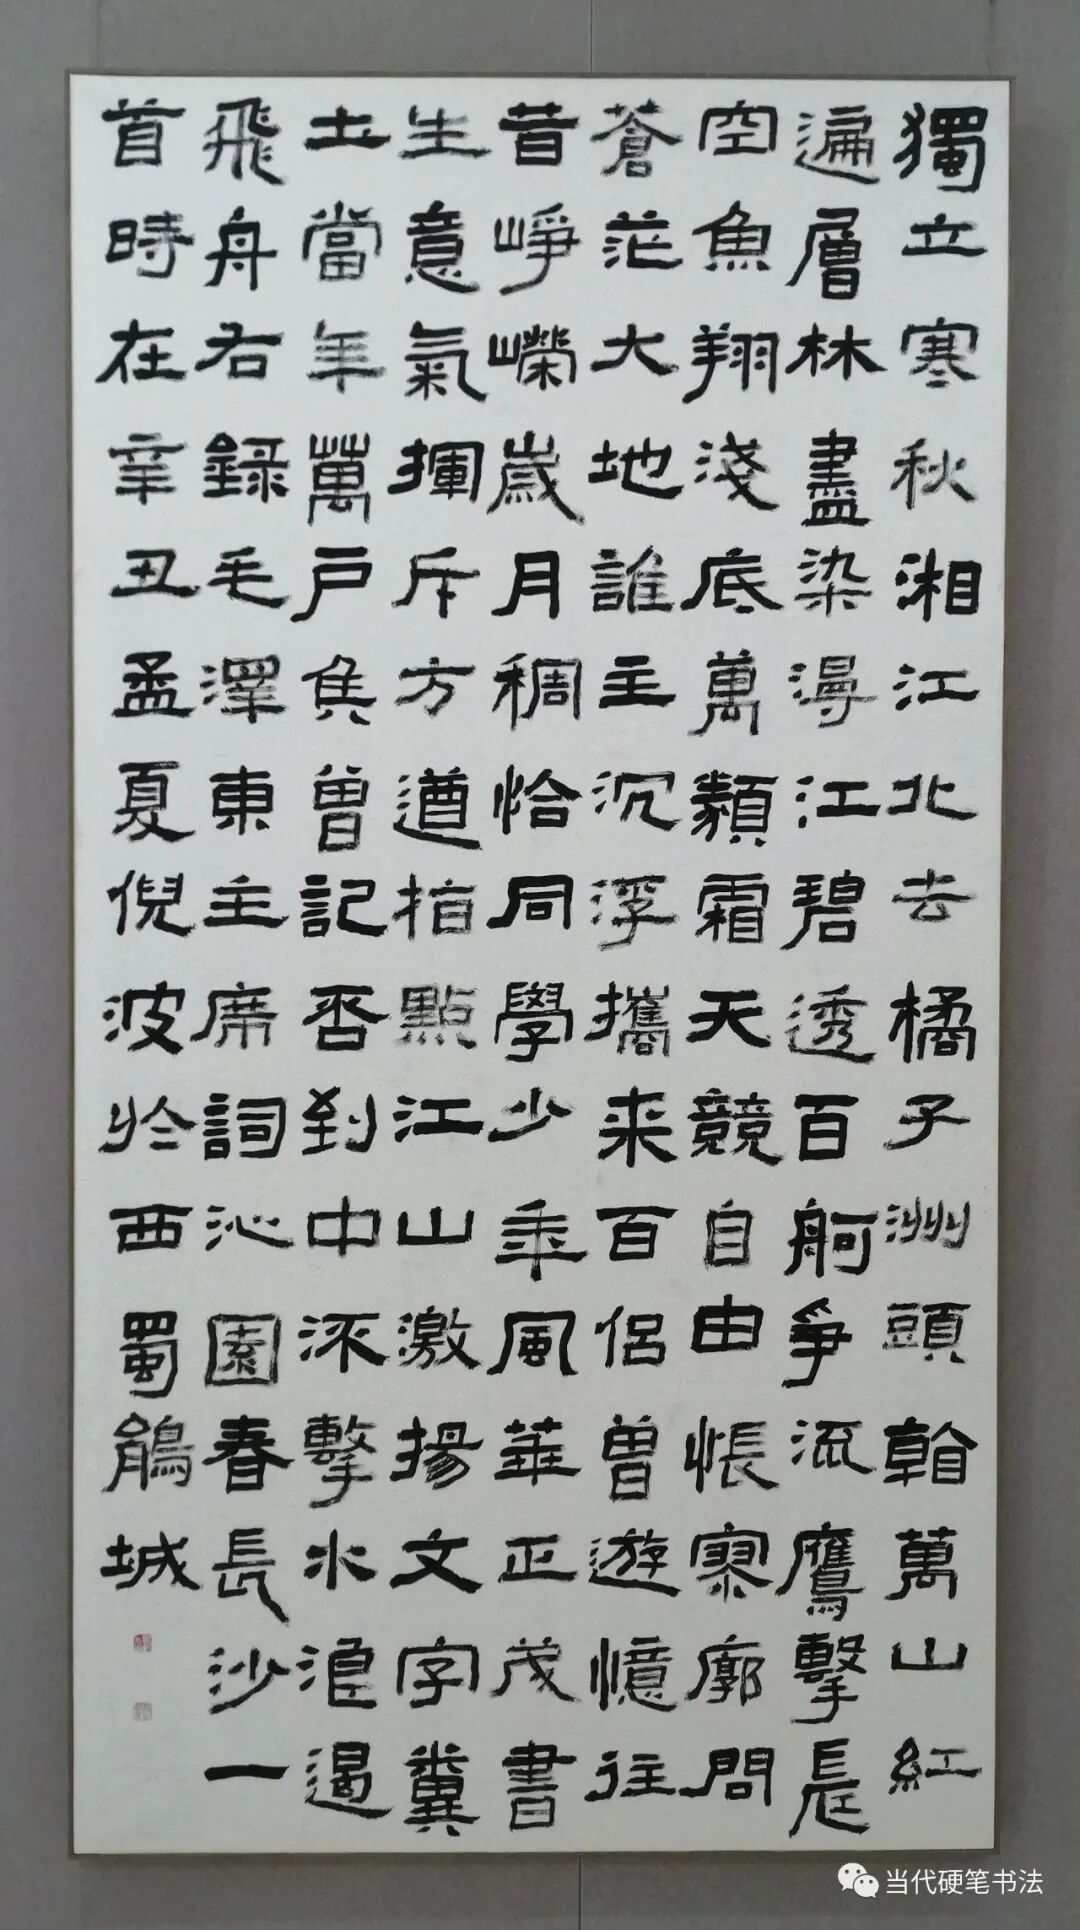 獨立寒秋湘江北去橘子洲頭看萬山紅
遍層林盡染漫江碧透百舸爭流鷹擊長
空魚翔淺底萬類霜天競自由悵寥廓問
蒼茫大地誰主沉浮攜来百侶曾遊憶往
昔崢嶸歲月稠恰同學少年風華正茂書
生意氣揮斥方遒指點江山激揚文字糞
土當年萬戶矦曾記否到中流擊水浪遏
飛舟右錄毛澤東主席詞沁園春長沙一
首時在辛丑孟夏倪波於西蜀鵑城
当代硬笔书法